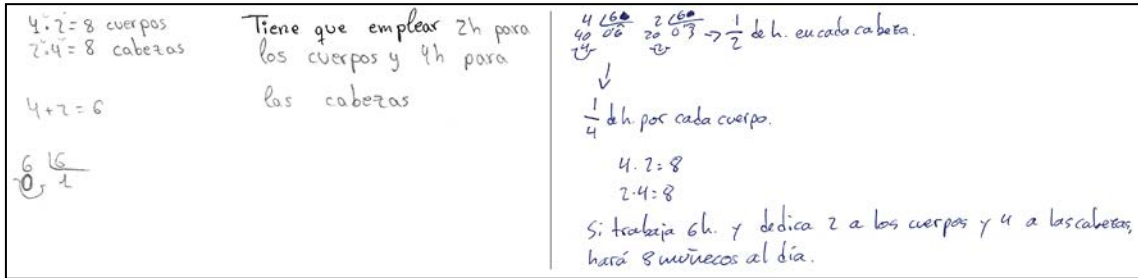 4·2=8 cuerpos
2·4=8 cabezas
4+2=6
6 |6
0 1
Tiene que emplear 2h para
los cuerpos y 4h para
las cabezas
4 |60 2 |60
40 06 20 03 → 1/2 de h. en cada cabeza.
1/4 de h. por cada cuerpo.
4·2=8
2·4=8
Si trabaja 6h. y dedica 2 a los cuerpos y 4 a las cabezas,
hará 8 muñecos al día.